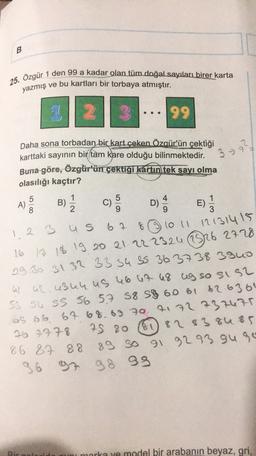 B
25. Özgür 1 den 99 a kadar olan tüm doğal sayıları birer karta
yazmış ve bu kartları bir torbaya atmıştır.
1 2 3 ... 99
Daha sona torbadan bir kart çeken Özgür'ün çektiği
karttaki sayının bir tam kare olduğu bilinmektedir.
Buna göre, Özgür'ün çektiği kartın tek sayı olma
olasılığı kaçtır?
A) 5/8 B) 1/2 C) 5/9 D) 4/9 E) 1/3
1 2 3 4 5 6 7 8 9 10 11 12 13 14 15
16 17 18 19 20 21 22 23 24 25 26 27 28
29 30 31 32 33 34 35 36 37 38 39 40
41 42 43 44 45 46 47 48 49 50 51 52
53 54 55 56 57 58 59 60 61 62 63 64
65 66 67 68 69 70 71 72 73 74 75
76 77 78 79 80 81 82 83 84 85
86 87 88 89 90 91 92 93 94 95
96 97 98 99
marka ve model bir arabanın beyaz, gri,